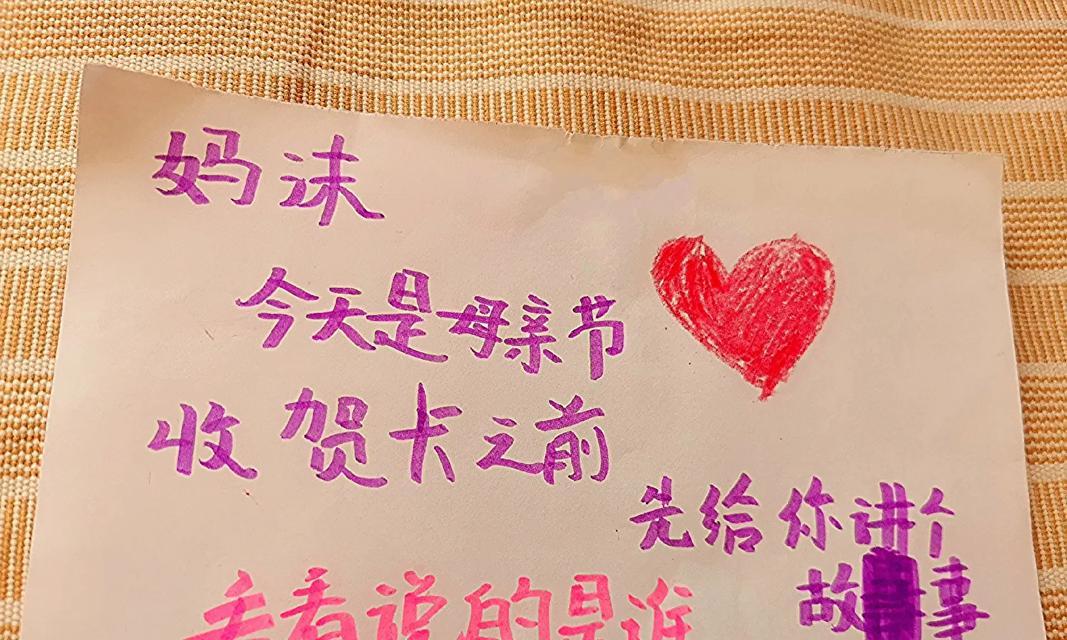 妈沫
今天是母亲节
收贺卡之前
先给你讲个
故事
看说的是谁